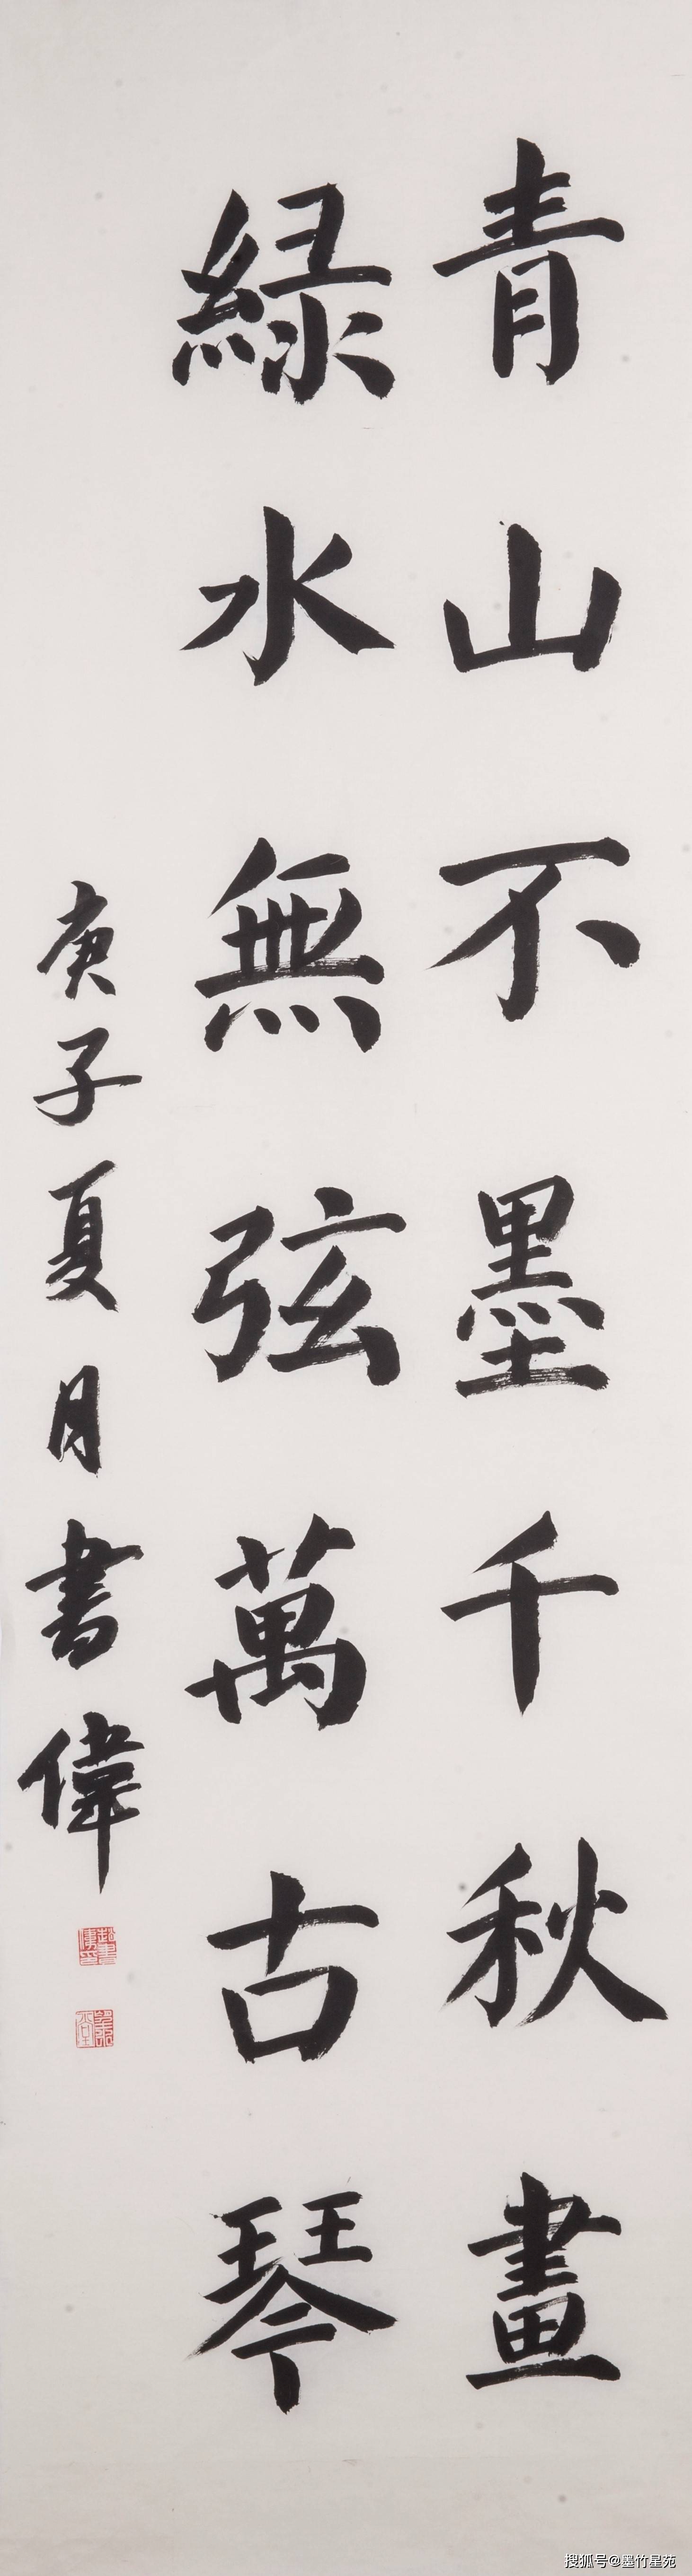 青山不墨千秋畫
緑水無弦萬古琴
庚子夏月書偉
搜狐号@墨竹星苑